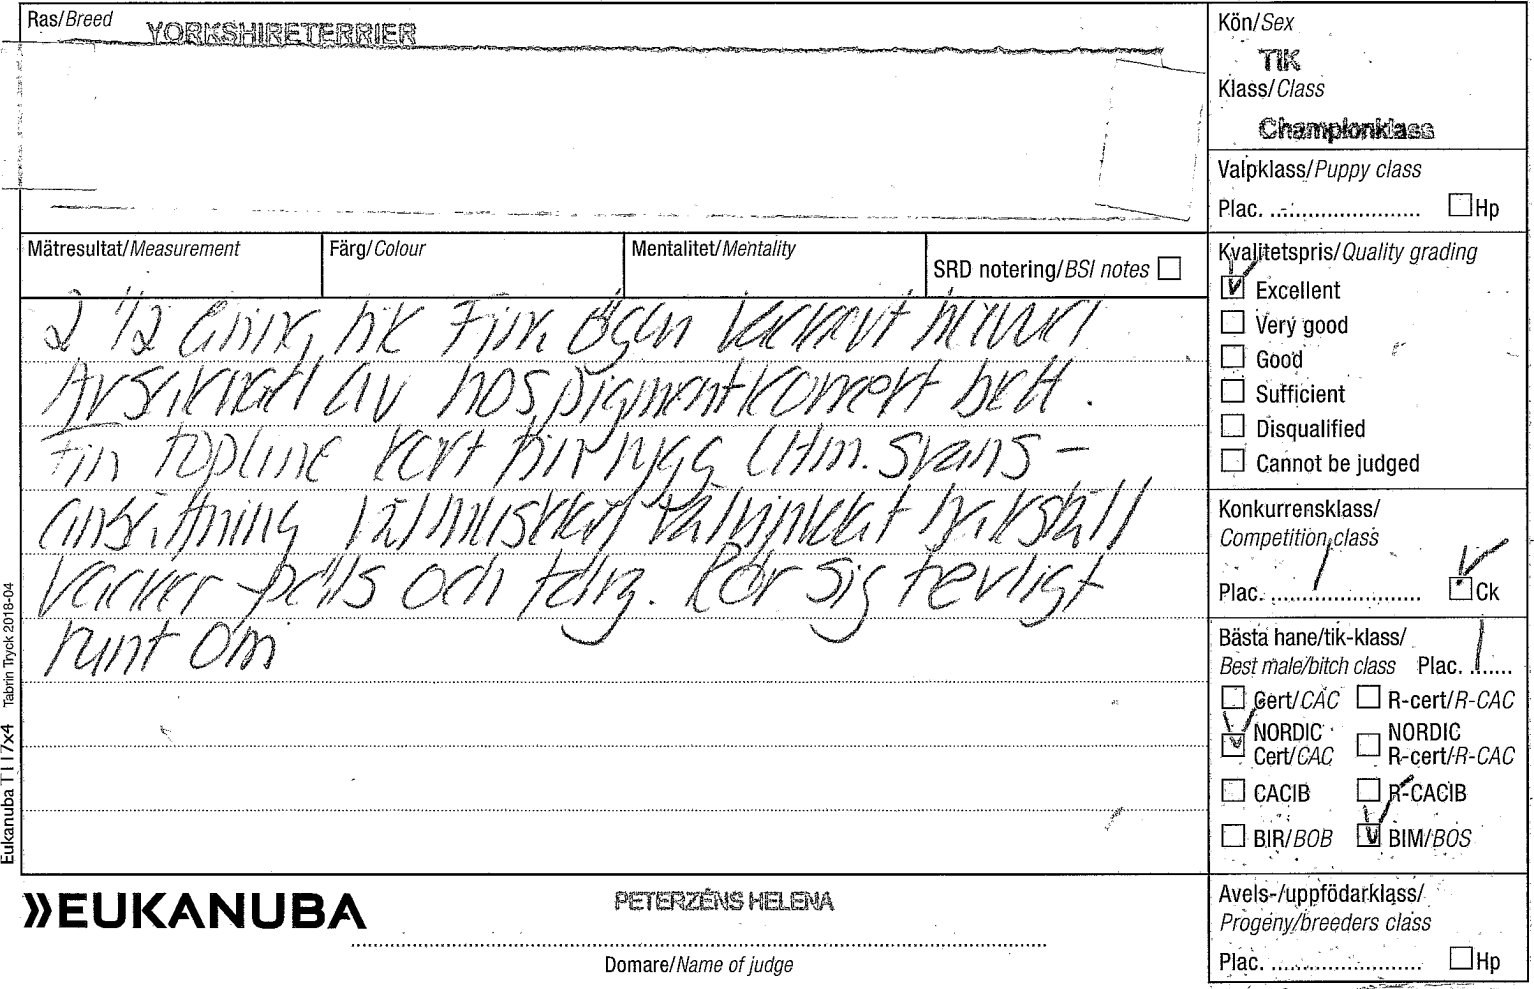 Ras/Breed YORKSHIRETERRIER
Kön/Sex
TIK
Klass/Class
Championklass
Valpklass/Puppy class
Plac. ........................ Hp
Mätresultat/Measurement Färg/Colour Mentalitet/Mentality SRD notering/BSI notes
Kvalitetspris/Quality grading
Excellent
Very good
Good
Sufficient
Disqualified
Cannot be judged
2 1/2 tik Fin. Ögon Vackert huvud
av nos pigment korrekt bett.
Fin topline kort fin rygg utm. svans-
ansättning Välmusklad Välvinklat
Vacker päls och färg. Rör sig trevligt
runt om
Konkurrensklass/
Competition class
Plac. 1 Ck
Bästa hane/tik-klass/
Best male/bitch class Plac. 1
Cert/CAC R-cert/R-CAC
NORDIC Cert/CAC NORDIC R-cert/R-CAC
CACIB R-CACIB
BIR/BOB BIM/BOS
Eukanuba T117x4 Tabrin Tryck 2018-04
EUKANUBA
PETERZÉNS HELENA
Domare/Name of judge
Avels-/uppfödarklass/
Progeny/breeders class
Plac. ........................ Hp